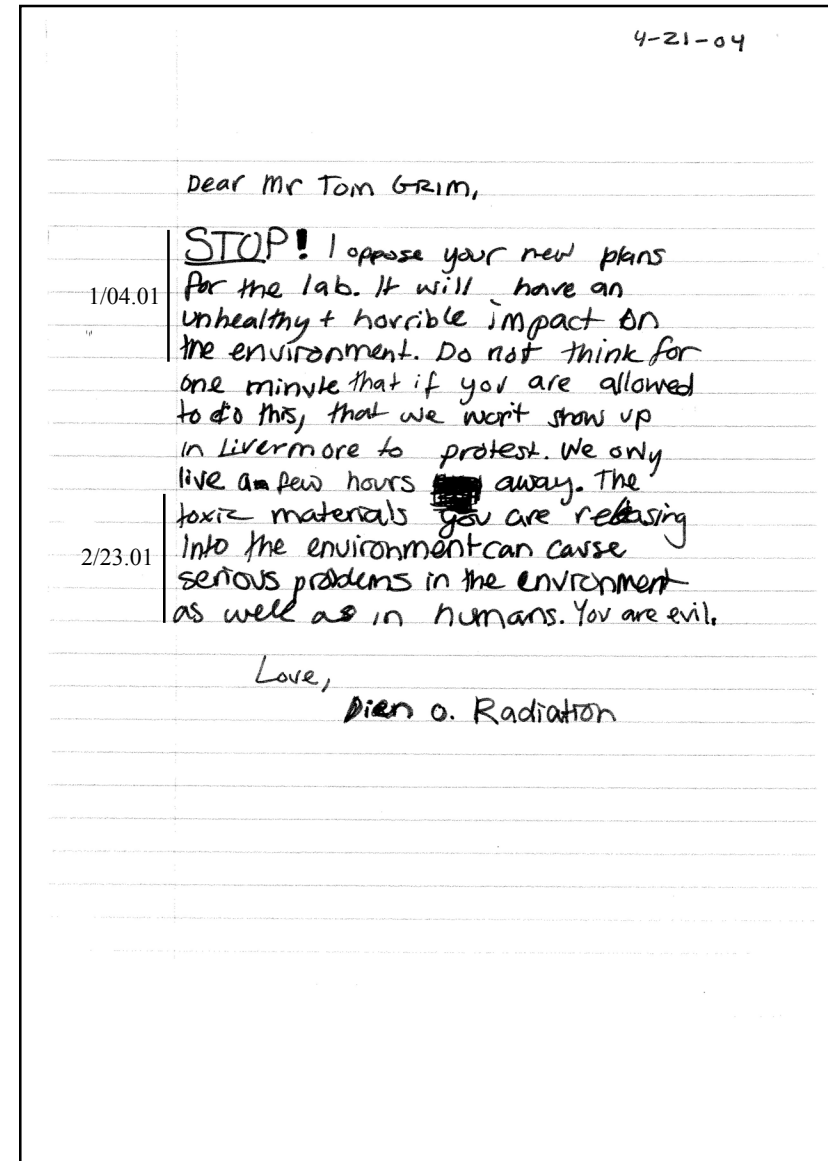 4-21-04
Dear Mr Tom GRIM,
STOP! I oppose your new plans
for the lab. It will have an
1/04.01
unhealthy + horrible impact on
the environment. Do not think for
one minute that if you are allowed
to do this, that we won't show up
in Livermore to protest. We only
live a few hours away. The
toxic materials you are releasing
into the environment can cause
2/23.01
serious problems in the envronment
as well as in humans. You are evil.
Love,
Dien o. Radiation